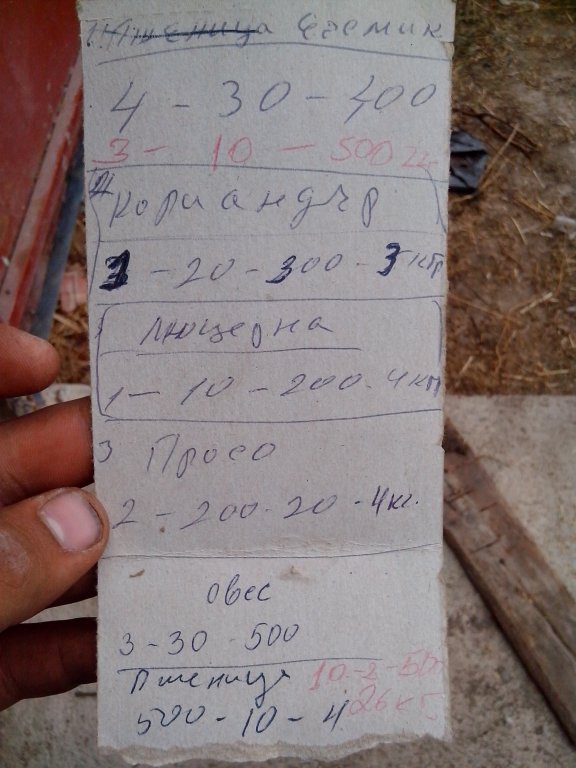 Пшеница ечемик
4 - 30 - 400
3 - 10 - 500
Кориандър
- 20 - 300 - 3 кгр
Люцерна
1 - 10 - 200 - 4 кгр
3 Просо
2 - 200 - 20 - 4 кг.
овес
3 - 30 - 500
Пшеница 10 - 2 -
500 - 10 - 4 26 кг